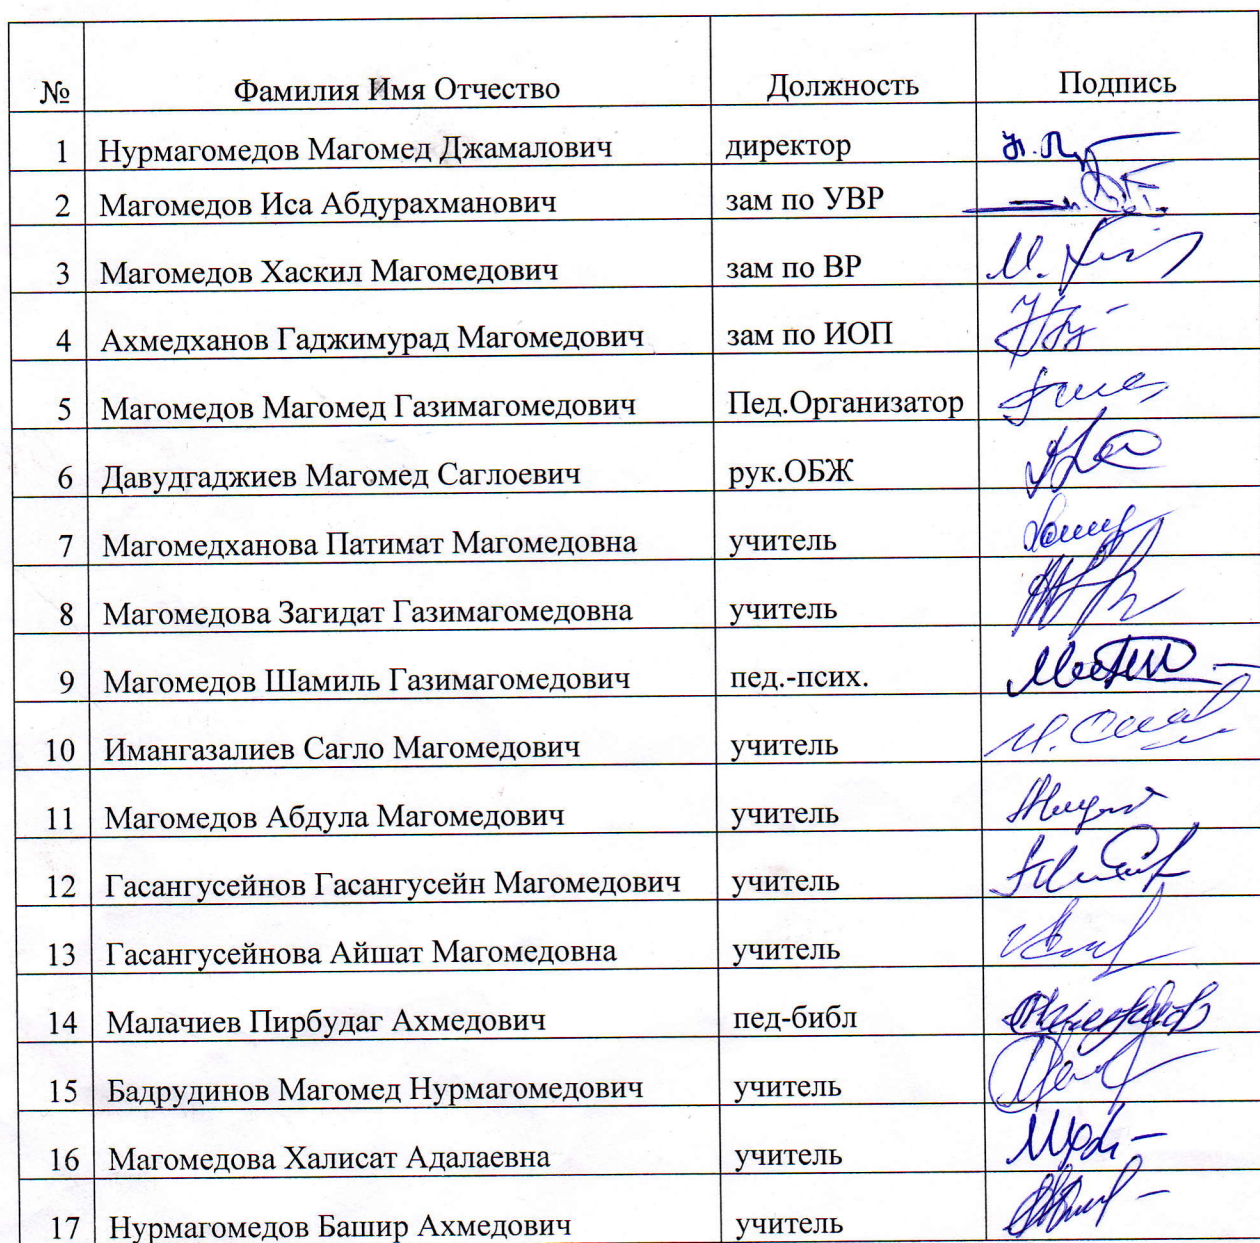 № Фамилия Имя Отчество Должность Подпись
1 Нурмагомедов Магомед Джамалович директор
2 Магомедов Иса Абдурахманович зам по УВР
3 Магомедов Хаскил Магомедович зам по ВР
4 Ахмедханов Гаджимурад Магомедович зам по ИОП
5 Магомедов Магомед Газимагомедович Пед.Организатор
6 Давудгаджиев Магомед Саглоевич рук.ОБЖ
7 Магомедханова Патимат Магомедовна учитель
8 Магомедова Загидат Газимагомедовна учитель
9 Магомедов Шамиль Газимагомедович пед.-псих.
10 Имангазалиев Сагло Магомедович учитель
11 Магомедов Абдула Магомедович учитель
12 Гасангусейнов Гасангусейн Магомедович учитель
13 Гасангусейнова Айшат Магомедовна учитель
14 Малачиев Пирбудаг Ахмедович пед-библ
15 Бадрудинов Магомед Нурмагомедович учитель
16 Магомедова Халисат Адалаевна учитель
17 Нурмагомедов Башир Ахмедович учитель